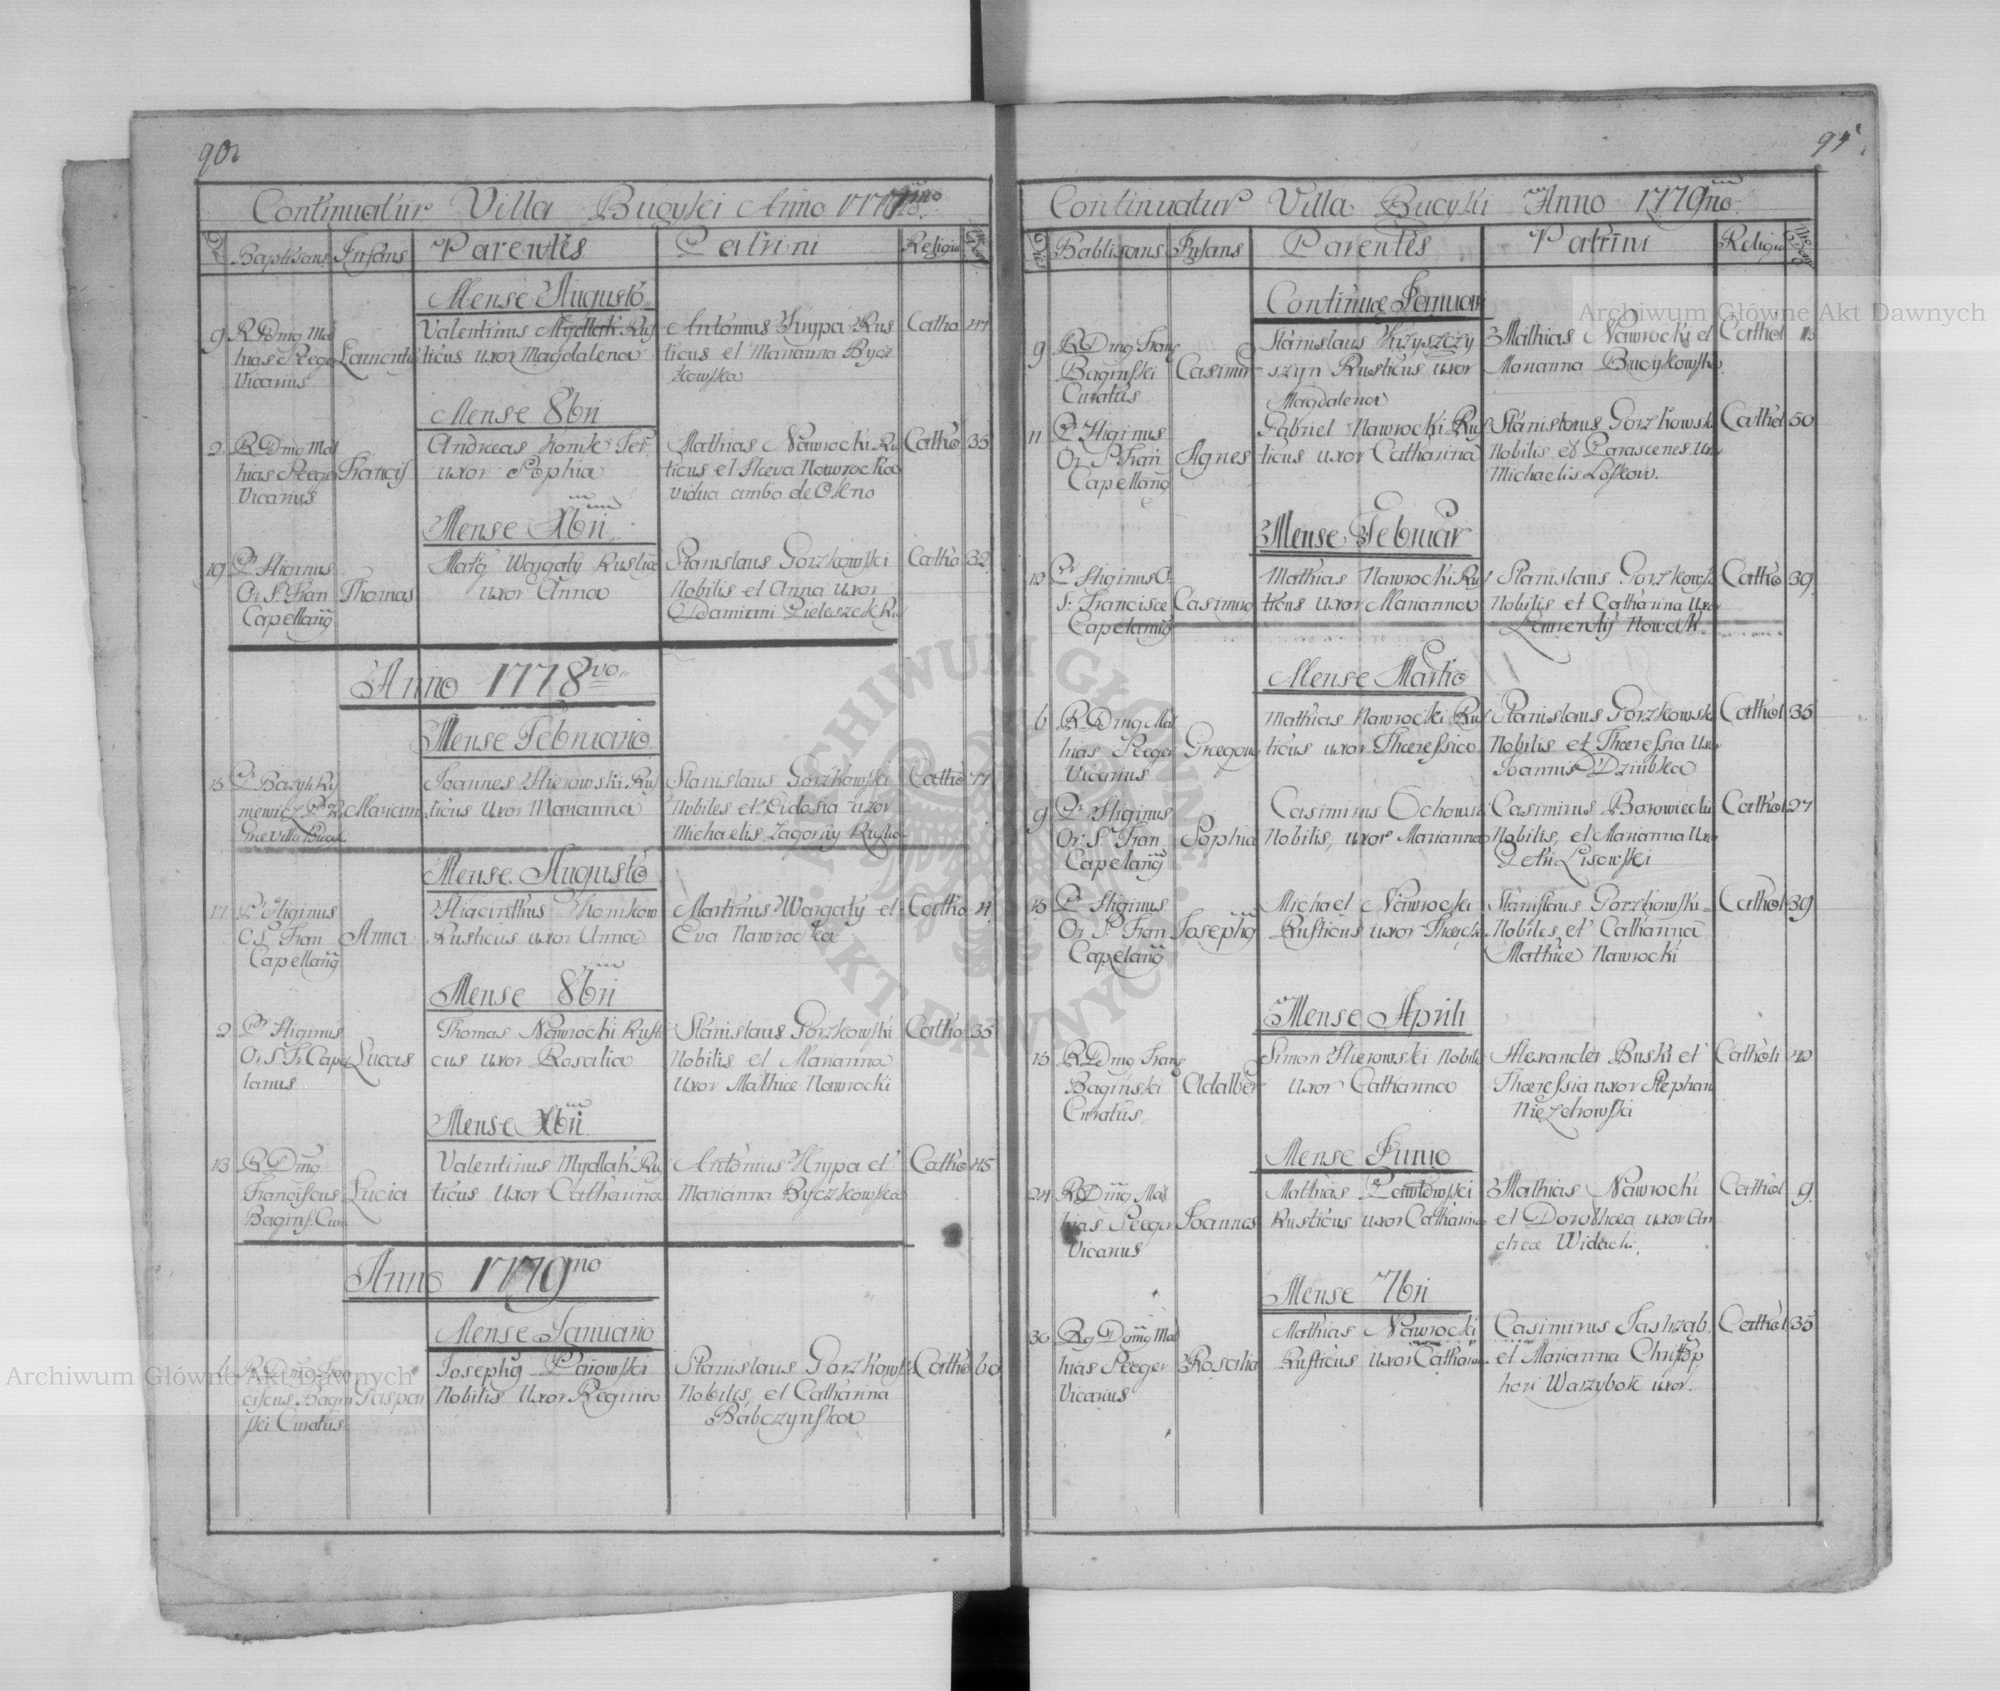 90
Continuatur Villa Bucyki Anno 1777mo
Dies Baptisans Infans Parentes Patrini Religio
Mense Augusto
9 R Dmg Mat
hias Pleger
Vicarius
Valentinus Mydlak Rus
ticus uxor Magdalena
Antonius Hnypa Rus
ticus et Marianna Bycz
kowska
Catho
Mense 8bri
2 R Dmg Mat
hias Pleger
Vicarius
Francis
Andreas
uxor Sophia
Mathias Nawrocki Ru
ticus et Heva Nawrocka
vidua ambo de Olsno
Catho 35
Mense Xbri
19 Pr Higinus
Or S. Fran
Capellang
Thomas
Wargaty Rustic
uxor Anna
Stanislaus Gorzkowski
Nobilis et Anna uxor
Damiani Pieleszek Ru
Catho 32
Anno 1778vo
Mense Februario
15 Pr Bazyli Ry
mewicz
Mariann
Joannes Hierowski Rus
ticus uxor Marianna
Stanislaus Gorzkowski
Nobiles et Eudosia uxor
Michaelis Zagorny Rustic
Catho
Mense Augusto
17 Pr Higinus
O S. Fran
Capellang
Anna
Hiacinthus Chomkow
Rusticus uxor Anna
Martinus Wargaty et
Eva Nawrocka
Catho
Mense 8bri
2 Pr Higinus
Or S. Fr Capel
lanus
Lucas
Thomas Nawrocki Rusti
cus uxor Rosalia
Stanislaus Gorzkowski
Nobilis et Marianna
uxor Mathiae Nawrocki
Catho 35
Mense Xbri
13 R Dmg
Franciscus
Bagins. Cura
Lucia
Valentinus Mydlak Ru
ticus uxor Catharina
Antonius Hnypa et
Marianna Byczkowska
Catho 45
Anno 1779no
Mense Januario
6 R Dmg Fran
ciscus Bagin
ski Curatus
Gaspar
Josephg Paiowski
Nobilis uxor Regina
Stanislaus Gorzkowsk
Nobilis, et Catharina
Babczynska
Catho 60
Continuatur Villa Bucyki Anno 1779no
Dies Babtisans Infans Parentes Patrini Religio
Continuae Januari
9 R Dmg Frang
Baginski
Curatus
Casimir
Stanislaus Krzyszczy
szyn Rusticus uxor
Magdalena
Mathias Nawrocki et
Marianna Bucykowska
Cathol
11 Pr Higinus
Or S. Fran
Capellang
Agnes
Gabriel Nawrocki Rus
ticus uxor Catharina
Stanislaus Gorzkowsk
Nobilis et Parascenes uxor
Michaelis Loskow.
Cathol 50
Mense Februar
12 Pr Higinus O
S. Francisce
Capelanus
Casimir
Mathias Nawrocki Rus
ticus uxor Marianna
Stanislaus Gorzkowsk
Nobilis et Catharina uxor
Laurenty Nowak.
Catho 39
Mense Martio
6 R Dmg Mat
hias Pleger
Vicarius
Gregoriu
Mathias Nawrocki Rus
ticus uxor Theressia
Stanislaus Gorzkowsk
Nobilis et Theressia uxor
Joannis Dziubka
Cathol 35
9 Pr Higinus
Or S. Fran
Capelang
Sophia
Casimirus Ochows
Nobilis, uxor Marianna
Casimirus Borowiecki
Nobilis, et Marianna uxor
Petri Lisowski
Cathol 27
15 Pr Higinus
Or S. Fran
Capelang
Josephg
Michael Nawrocki
Rusticus uxor Theress
Stanislaus Gorzkowski
Nobiles, et Catharina
Mathiae Nawrocki
Cathol 39
Mense Aprili
15 R Dmg Frang
Baginski
Curatus
Adalber
Simon Hierowski Nobile
uxor Catharina
Alexander Buski et
Theressia uxor Stephani
Niezchowski
Catholi 40
Mense Junio
24 R Dmg Mat
hias Pleger
Vicarius
Joannes
Mathias Pawlowski
Rusticus uxor Catharina
Mathias Nawrocki
et Dorothea uxor An
dreae Widacki
Cathol 9
Mense 7bri
30 Rg Domg Mat
hias Pleger
Vicarius
Rosalia
Mathias Nawrocki
Rusticus uxor Catharin
Casimirus Jashzab.
et Marianna Christop
hori Warzybok uxor.
Cathol 35
Archiwum Główne Akt Dawnych
Archiwum Główne Akt Dawnych
ARCHIWUM GŁÓWNE AKT DAWNYCH